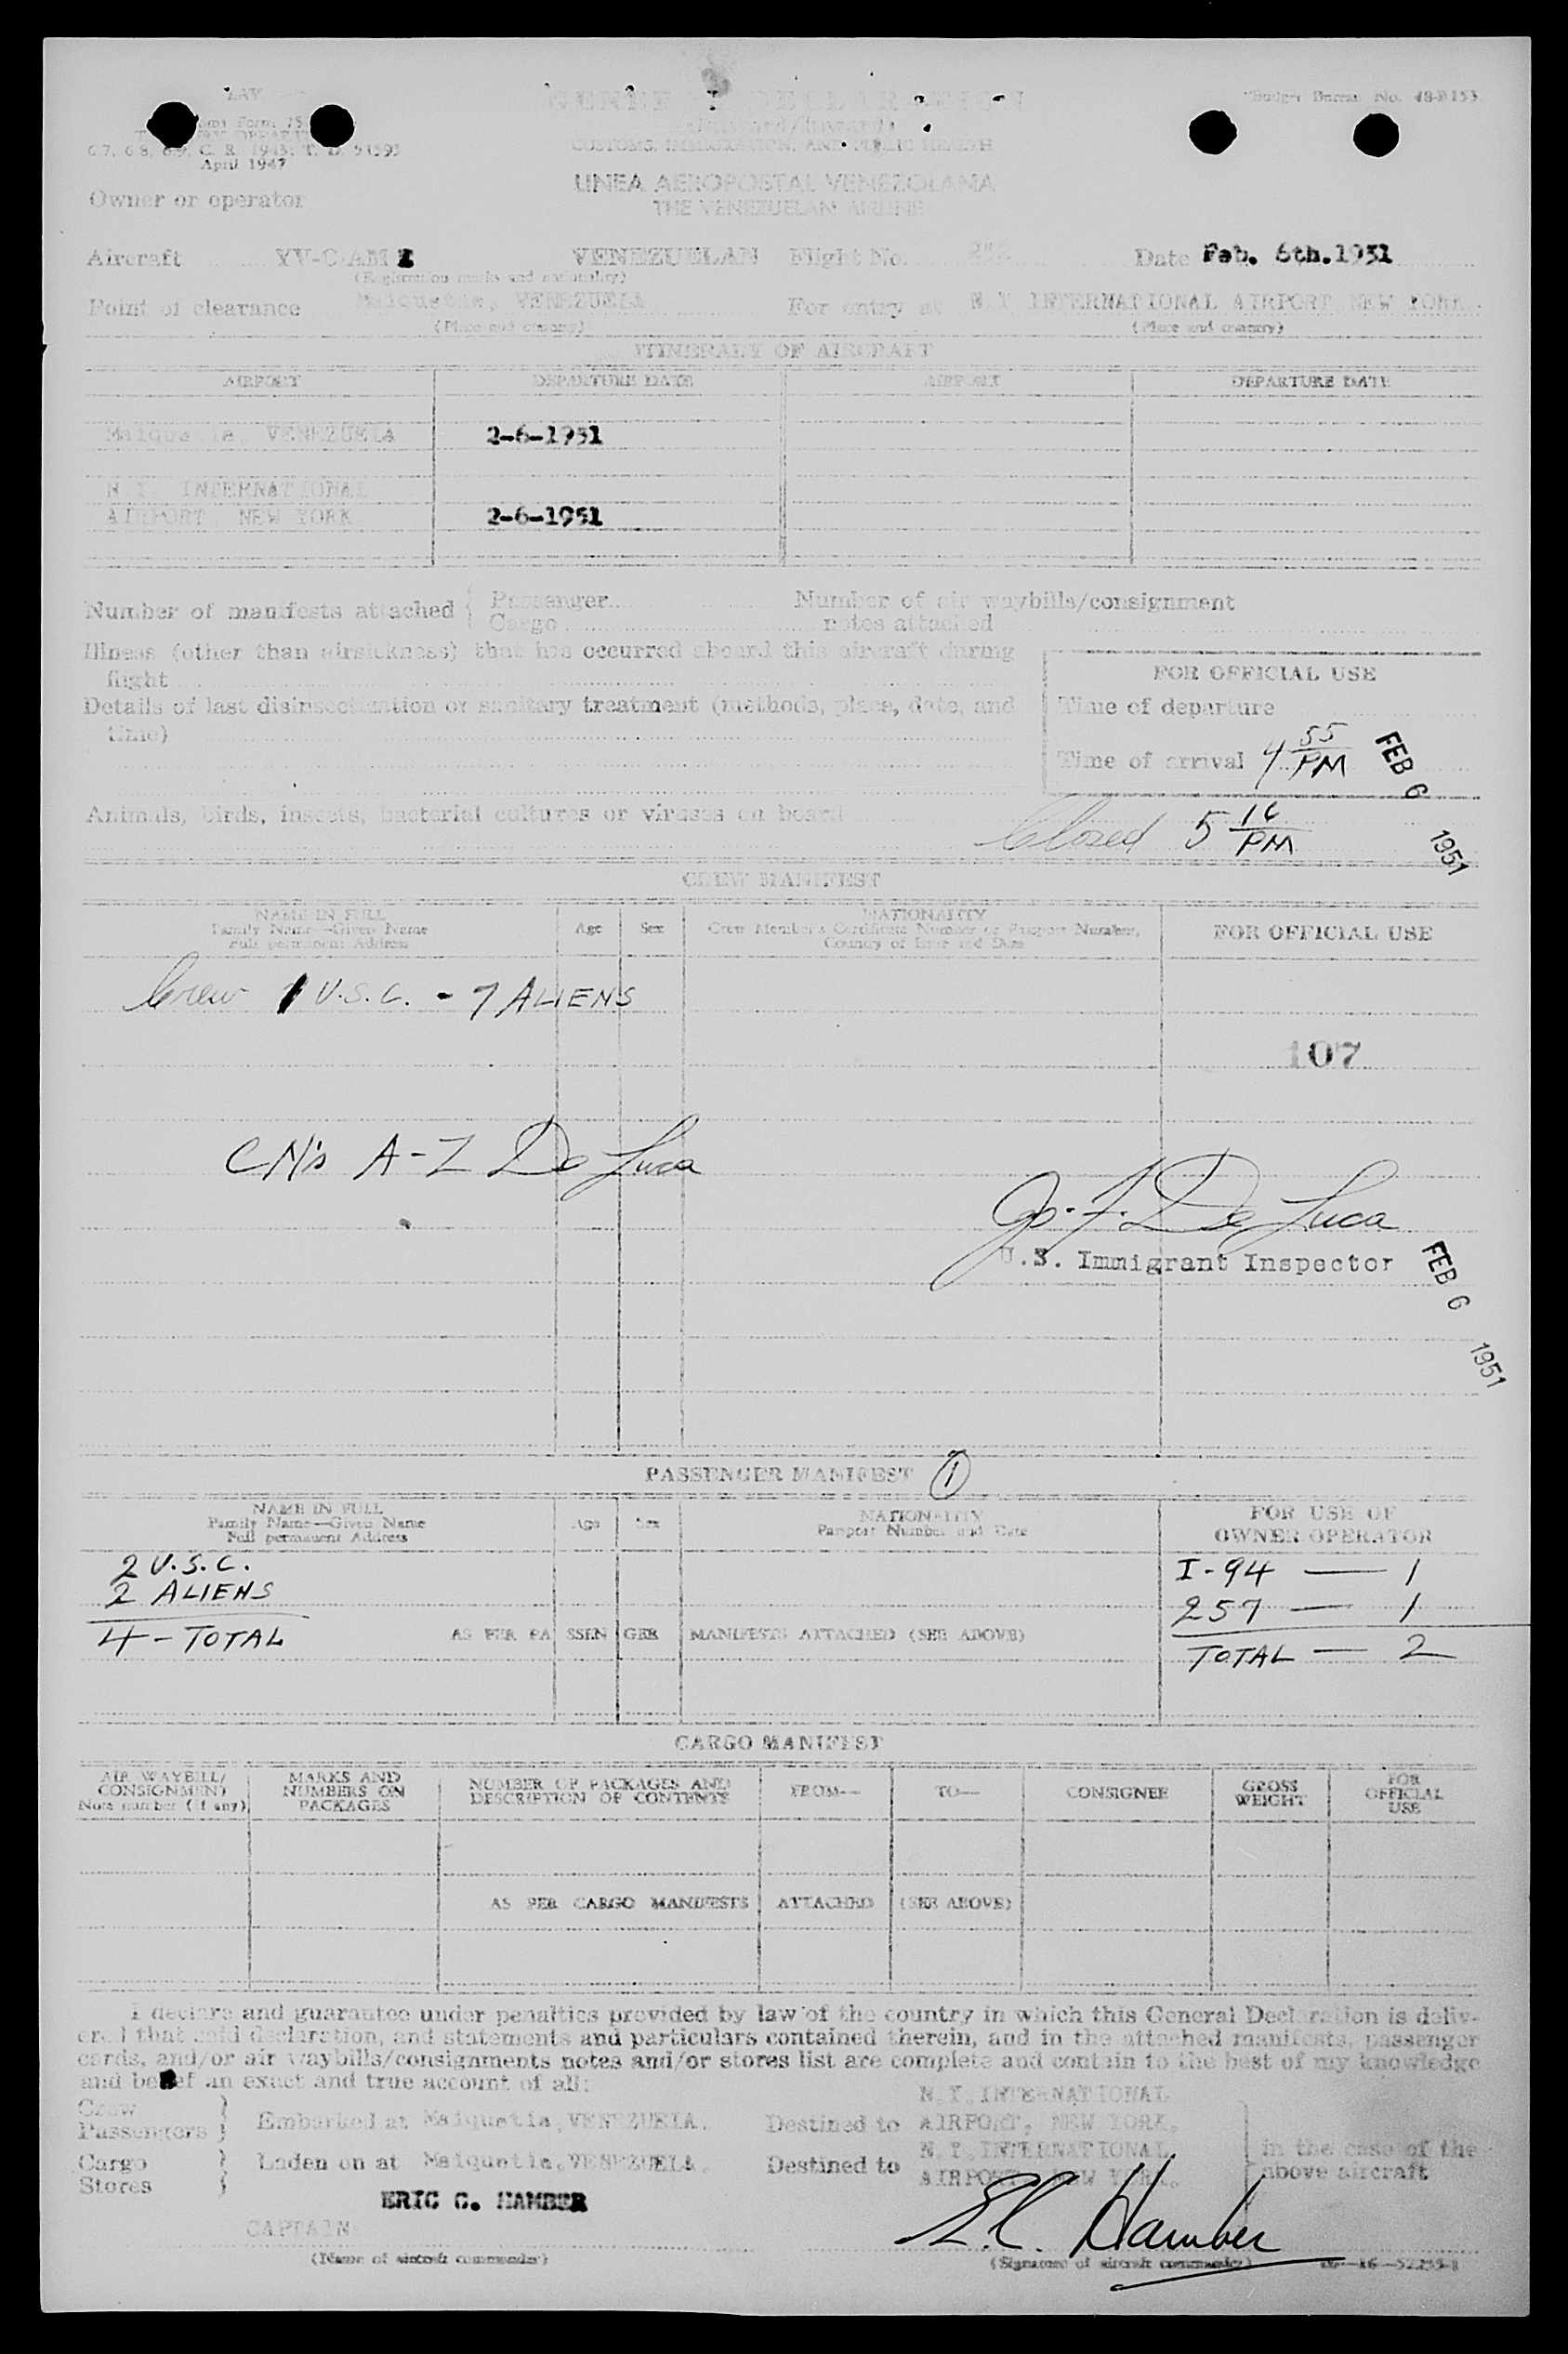 LAV
Customs Form 75
6.7, 6.8, 6.9, C. R. 1943; T. D. 51593
April 1947
GENERAL DECLARATION
(Outward/Inward)
CUSTOMS, IMMIGRATION, AND PUBLIC HEALTH
Budget Bureau No. 48-R153
LINEA AEROPOSTAL VENEZOLANA
THE VENEZUELAN AIRLINE
Owner or operator
Aircraft YV-C-AM VENEZUELAN Flight No. Date Feb. 6th.1951
(Registration marks and nationality)
Point of clearance Maiquetia, VENEZUELA For entry at N.Y INTERNATIONAL AIRPORT NEW YORK
(Place and country) (Place and country)
ITINERARY OF AIRCRAFT
AIRPORT DEPARTURE DATE AIRPORT DEPARTURE DATE
Maiquetia, VENEZUELA 2-6-1951
N.Y. INTERNATIONAL
AIRPORT, NEW YORK 2-6-1951
Number of manifests attached { Passenger Number of air waybills/consignment
Cargo notes attached
Illness (other than airsickness) that has occurred aboard this aircraft during
flight
FOR OFFICIAL USE
Details of last disinsectization or sanitary treatment (methods, place, date, and
time)
Time of departure
Time of arrival 4 55 PM FEB 6 1951
Animals, birds, insects, bacterial cultures or viruses on board
Closed 5 16 PM
CREW MANIFEST
NAME IN FULL
Family Name—Given Name
Full permanent Address
Age Sex
NATIONALITY
Crew Member's Certificate Number or Passport Number,
Country of Issue and Date
FOR OFFICIAL USE
Crew 1 U.S.C. - 7 ALIENS
107
CM's A-Z De Luca
Jo. F. De Luca
U.S. Immigrant Inspector FEB 6 1951
PASSENGER MANIFEST 1
NAME IN FULL
Family Name—Given Name
Full permanent Address
Age Sex
NATIONALITY
Passport Number and Date
FOR USE OF
OWNER OPERATOR
2 U.S.C. I-94 — 1
2 ALIENS 257 — 1
4 - TOTAL AS PER PASSENGER MANIFESTS ATTACHED (SEE ABOVE) TOTAL — 2
CARGO MANIFEST
AIR WAYBILL/
CONSIGNMENT
Note number (if any)
MARKS AND
NUMBERS ON
PACKAGES
NUMBER OF PACKAGES AND
DESCRIPTION OF CONTENTS
FROM— TO— CONSIGNEE
GROSS
WEIGHT
FOR
OFFICIAL
USE
AS PER CARGO MANIFESTS ATTACHED (SEE ABOVE)
I declare and guarantee under penalties provided by law of the country in which this General Declaration is deliv-
ered that said declaration, and statements and particulars contained therein, and in the attached manifests, passenger
cards, and/or air waybills/consignments notes and/or stores list are complete and contain to the best of my knowledge
and belief an exact and true account of all:
Crew
Passengers } Embarked at Maiquetia, VENEZUELA. Destined to N.Y. INTERNATIONAL AIRPORT, NEW YORK.
Cargo
Stores } Laden on at Maiquetia, VENEZUELA. Destined to N.Y. INTERNATIONAL AIRPORT NEW YORK. in the case of the above aircraft
ERIC C. HAMBER
CAPTAIN E.C. Hamber
(Name of aircraft commander) (Signature of aircraft commander)